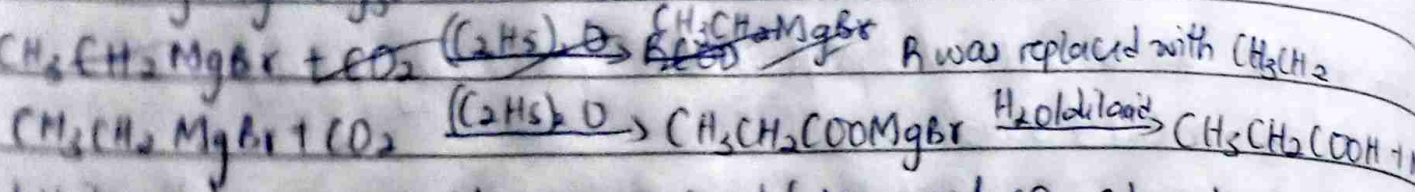 CH3CH2MgBr + CO2 (C2H5)2O → CH3CH2MgBr R was replaced with CH3CH2
CH3CH2MgBr + CO2 (C2H5)2O → CH3CH2COOMgBr H2O/dil acid → CH3CH2COOH +